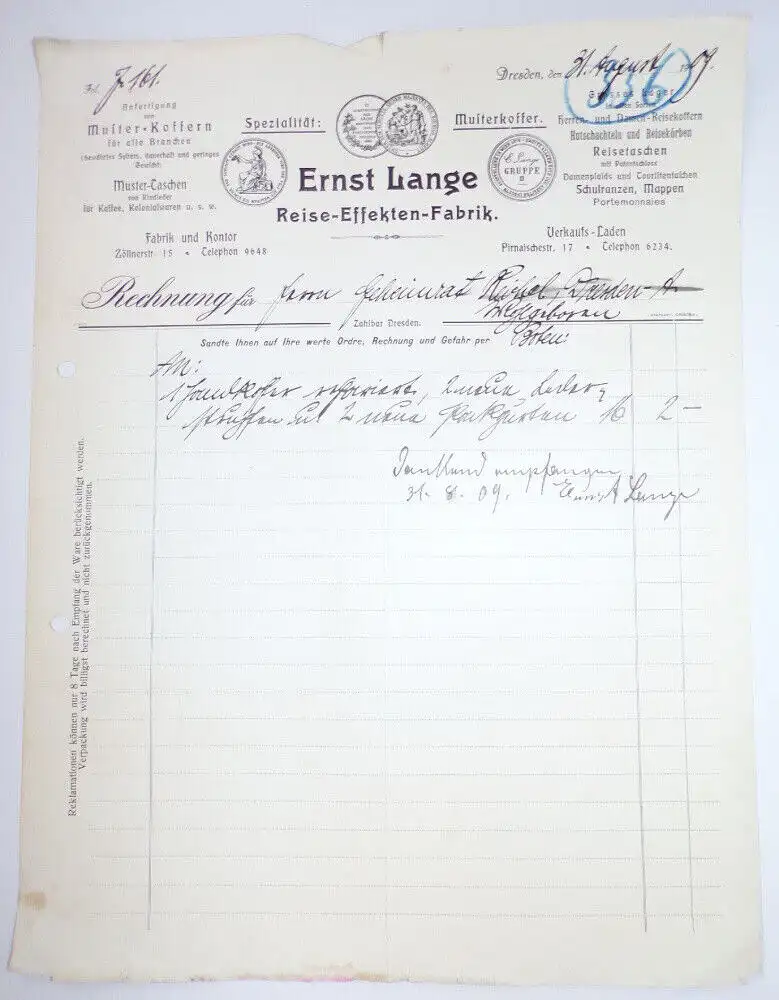 Fol. J. 161.
Dresden, den 31. August 1909.
336
Anfertigung
von
Muster-Koffern
für alle Branchen
(bewährtes System, dauerhaft und geringes
Gewicht)
Muster-Taschen
von Rindleder
für Kaffee, Kolonialwaren u. s. w.
Spezialität:
Musterkoffer.
Grosses Lager
in allen Sorten
Herren- und Damen-Reisekoffern
Hutschachteln und Reisekörben
Reisetaschen
mit Patentschloss
Damenplaids und Touristentaschen
Schulranzen, Mappen
Portemonnaies
E. Lange
GRUPPE
Ernst Lange
Reise-Effekten-Fabrik.
Fabrik und Kontor
Zöllnerstr. 15 • Telephon 9648
Verkaufs-Laden
Pirnaischestr. 17 • Telephon 6234.
Rechnung für Herrn Geheimrat Dresden-A.
Wohlgeboren
Zahlbar Dresden.
Sandte Ihnen auf Ihre werte Ordre, Rechnung und Gefahr per Boten:
An:
1 Handkoffer repariert, 2 neue Leder-
struppen mit 2 neue M 2 —
Dankend empfangen
31. 8. 09. Ernst Lange
Reklamationen können nur 8 Tage nach Empfang der Ware berücksichtigt werden.
Verpackung wird billigst berechnet und nicht zurückgenommen.